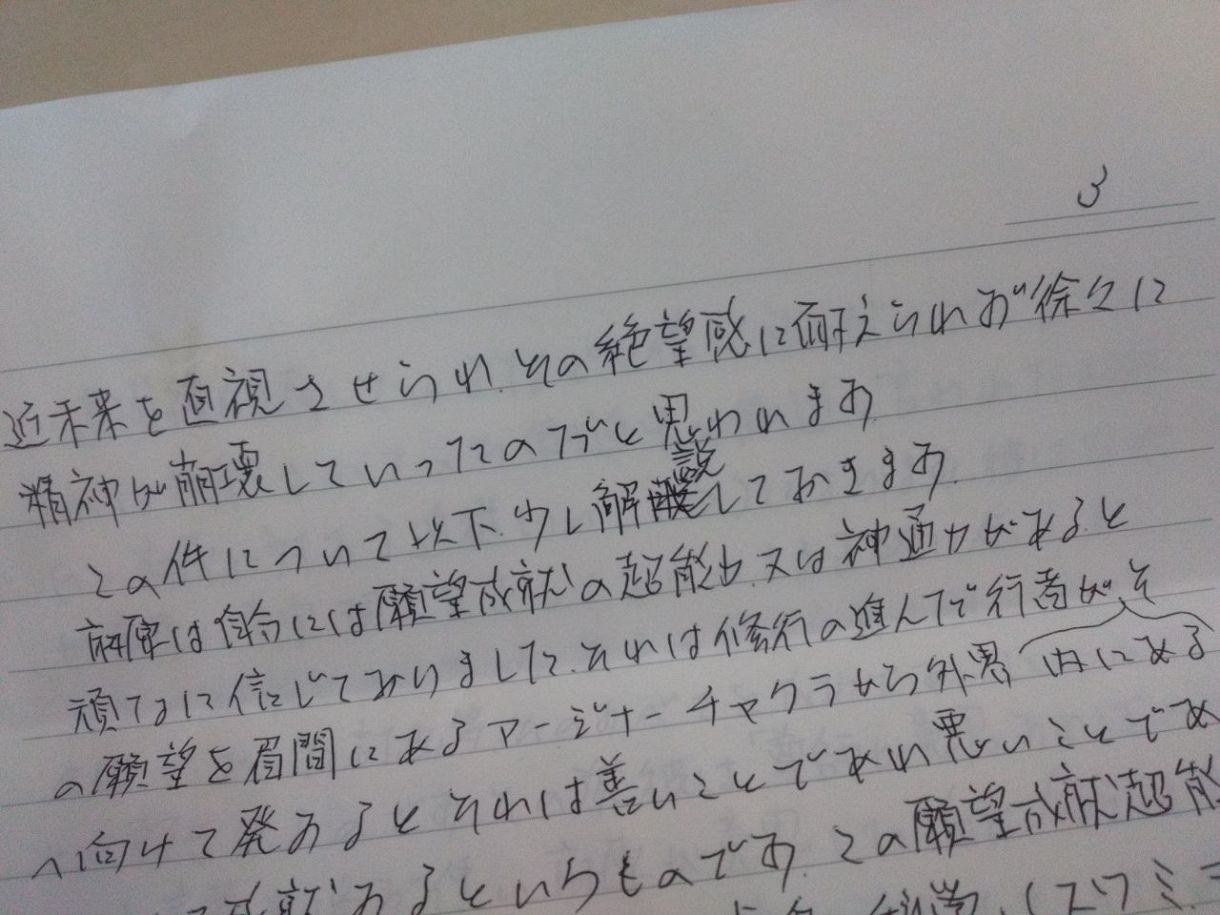 3
近未来を直視させられ、その絶望感に耐えられず徐々に
精神が崩壊していったのだと思われます。
この件について以下、少し解説しておきます。
は自分には願望成就の超能力、又は神通力があると
頑なに信じておりました。それは修行の進んだ行者がそ
の願望を眉間にあるアージナーチャクラから外界
内にある
へ向けて発すると、それは善いことであれ悪いことであ
成就するというものです。この願望成就超能